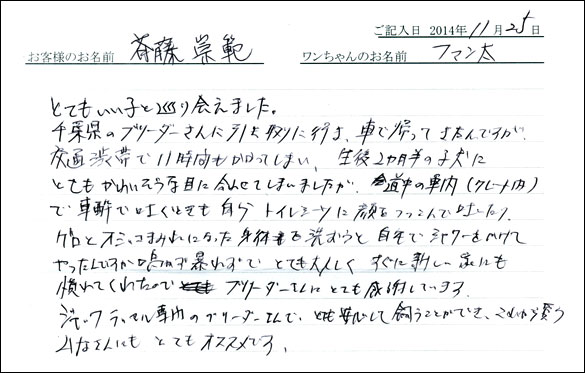 ご記入日 2014年11月25日
お客様のお名前 斉藤 崇範 ワンちゃんのお名前 フマン太
とてもいい子と巡り会えました。
千葉県のブリーダーさんに引き取りに行き、車で帰ってきたんですが、
交通渋滞で11時間もかかってしまい、生後2カ月半の子犬に
とてもかわいそうな目に合わせてしまいましたが、道中の車内(クレート内)
で車酔で吐くときも自らトイレシーツに顔をつっこんで吐いたり、
ゲロとオシッコまみれになった身体を洗おうと自宅でシャワーをかけて
やったんですが鳴かず暴れずで とても大人しく すぐに新しい家にも
慣れてくれたので ブリーダーさんにとても感謝しています。
ジャックラッセル専門のブリーダーさんで、とても安心して飼うことができ、これから買う
みなさんにも とても オススメです。